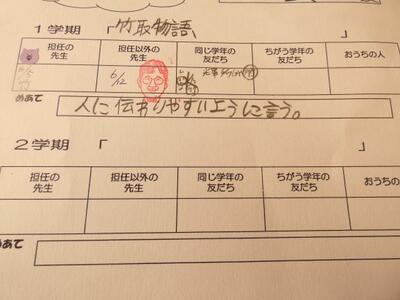 1学期 「竹取物語 」
担任の先生 担任以外の先生 同じ学年の友だち ちがう学年の友だち おうちの人
6/12
めあて 人に伝わりやすいように言う。
2学期 「 」
担任の先生 担任以外の先生 同じ学年の友だち ちがう学年の友だち おうちの
めあて